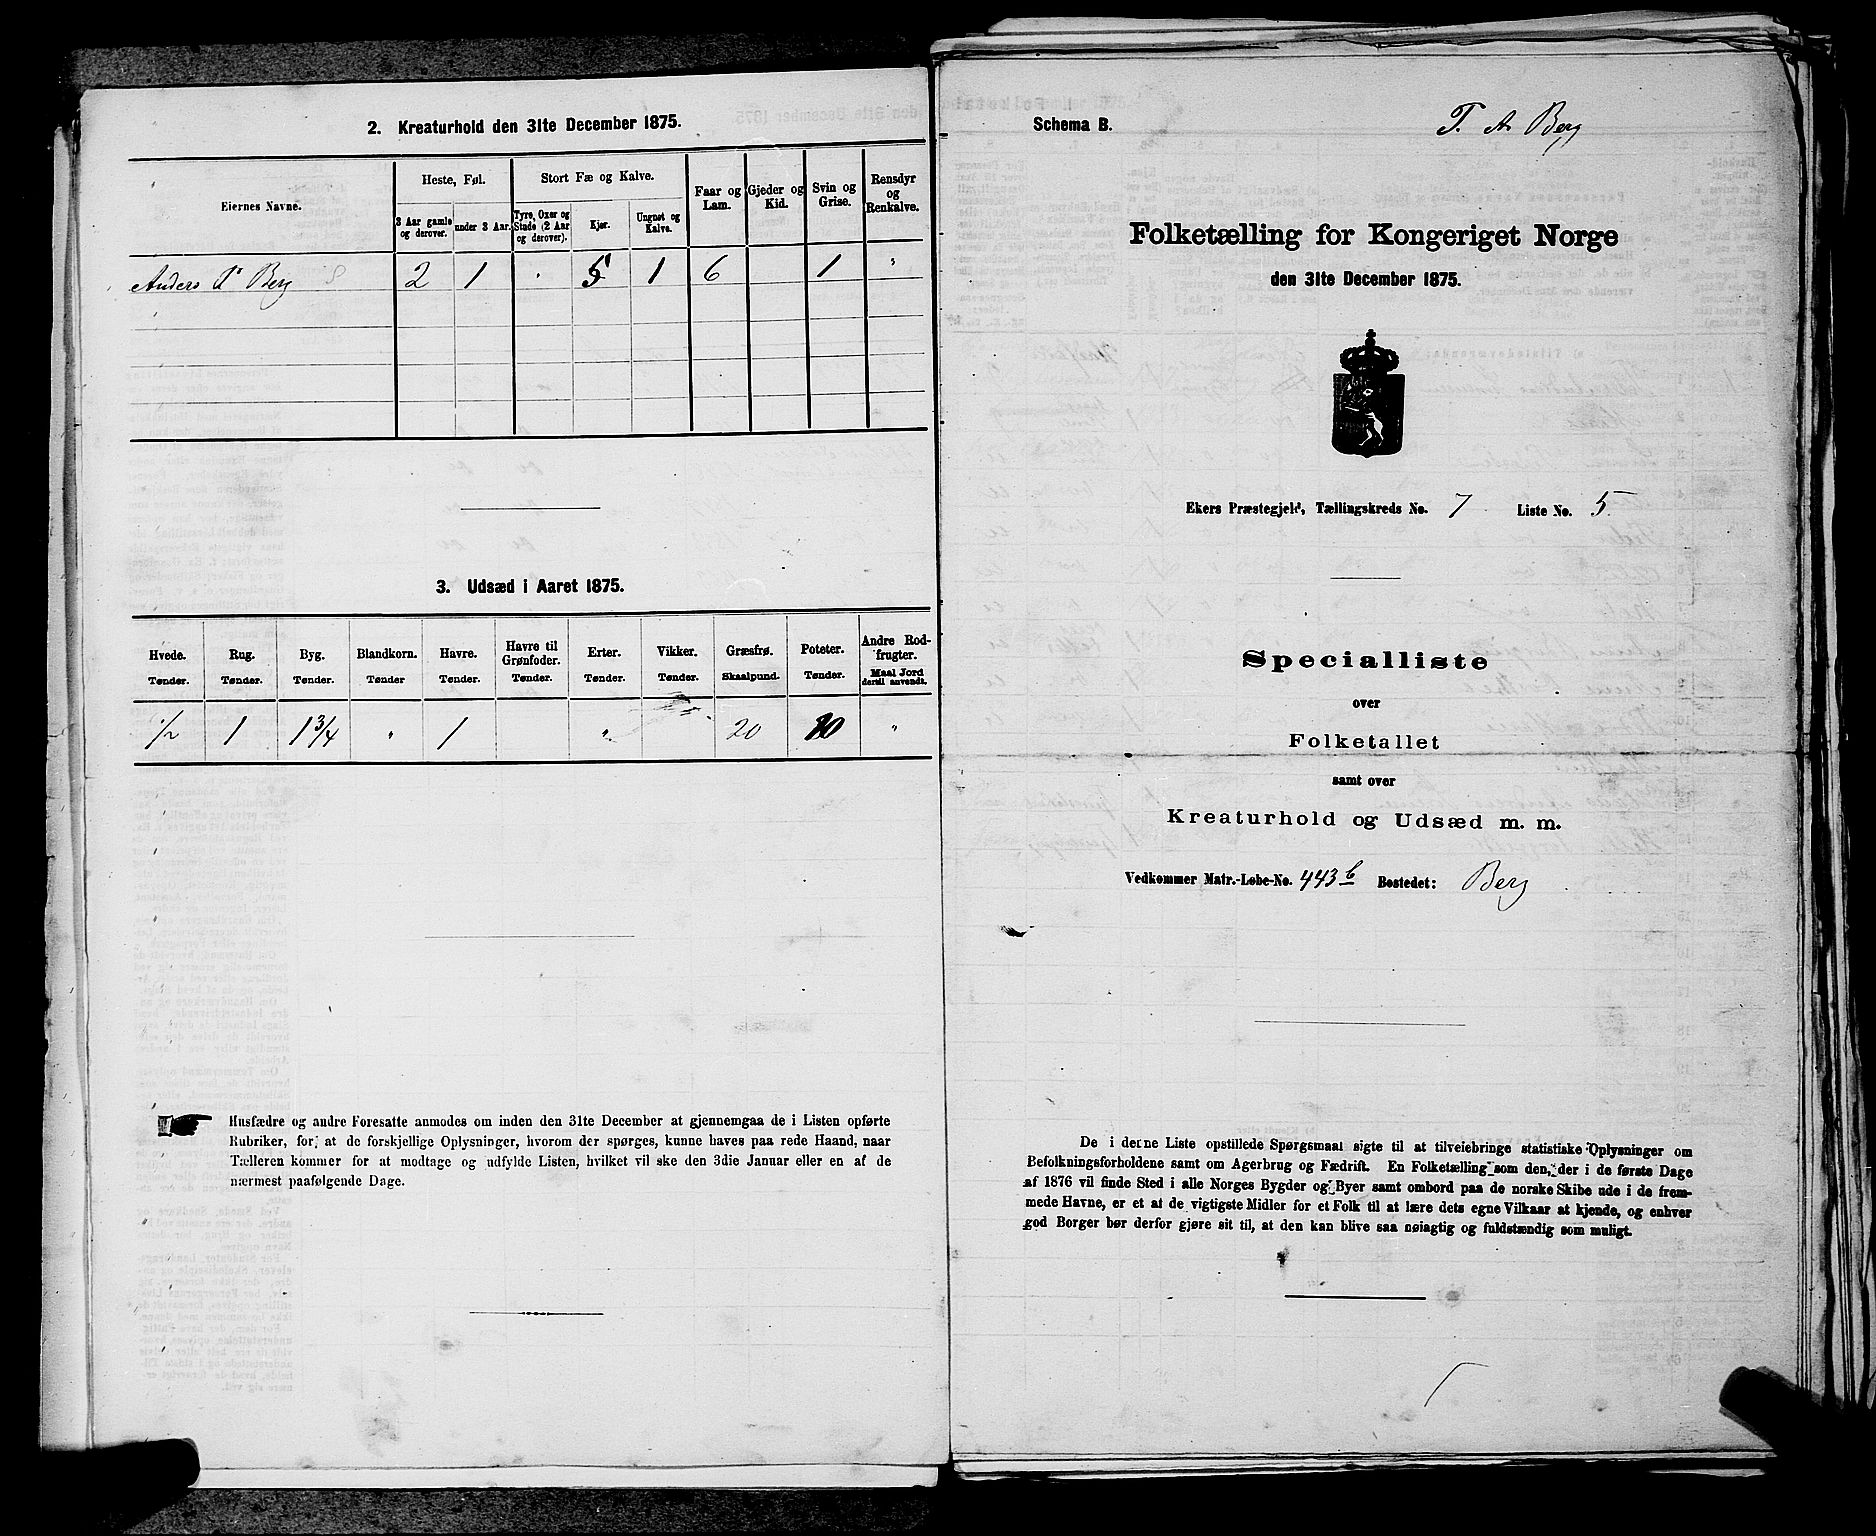 2. Kreaturhold den 31te December 1875.
Eiernes Navne.
Heste, Føl.
Stort Fæ og Kalve.
Faar og Lam.
Gjeder og Kid.
Svin og Grise.
Rensdyr og Renkalve.
3 Aar gamle og derover.
under 3 Aar.
Tyre, Oxer og Stude (2 Aar og derover).
Kjør.
Ungnøt og Kalve.
Anders Berg 2 1 5 1 6 1 "
3. Udsæd i Aaret 1875.
Hvede. Rug. Byg. Blandkorn. Havre. Havre til Grønfoder. Erter. Vikker. Græsfrø. Poteter. Andre Rodfrugter.
Tønder. Tønder. Tønder. Tønder Tønder. Tønder. Tønder. Tønder. Skaalpund. Tønder. Maal Jord dertil anvendt.
1/2 1 1 3/4 " 1 " 20 10 "
Husfædre og andre Foresatte anmodes om inden den 31te December at gjennemgaa de i Listen opførte
Rubriker, for, at de forskjellige Oplysninger, hvorom der spørges, kunne haves paa rede Haand, naar
Tælleren kommer for at modtage og udfylde Listen, hvilket vil ske den 3die Januar eller en af de
nærmest paafølgende Dage.
Schema B.
T. A. Berg
Folketælling for Kongeriget Norge
den 31te December 1875.
Ekers Præstegjeld, Tællingskreds No. 7 Liste No. 5
Specialliste
over
Folketallet
samt over
Kreaturhold og Udsæd m. m.
Vedkommer Matr.-Løbe-No. 443b Bostedet: Berg
De i denne Liste opstillede Spørgsmaal sigte til at tilveiebringe statistiske Oplysninger om
Befolkningsforholdene samt om Agerbrug og Fædrift. En Folketælling som den, der i de første Dage
af 1876 vil finde Sted i alle Norges Bygder og Byer samt ombord paa de norske Skibe ude i de frem-
mede Havne, er et af de vigtigste Midler for et Folk til at lære dets egne Vilkaar at kjende, og enhver
god Borger bør derfor gjøre sit til, at den kan blive saa nøiagtig og fuldstændig som muligt.